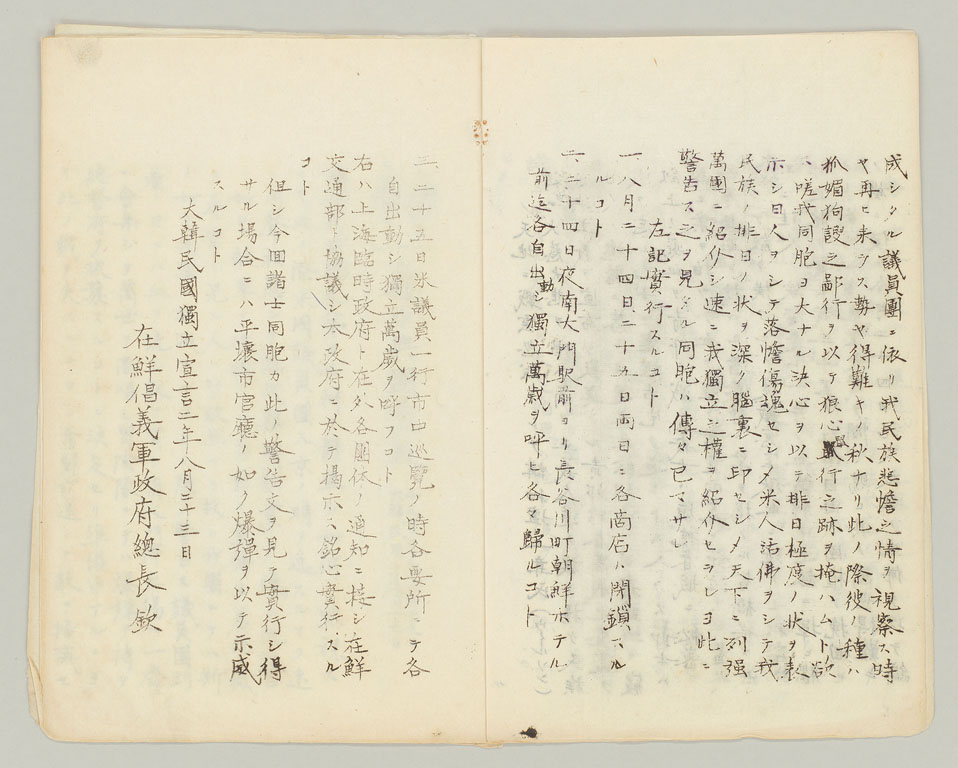 成シタル議員團ニ依リ我民族悲憺之情ヲ視察ス時
ヤ再ヒ来ラス勢ヤ得難キノ秋ナリ此ノ際彼ノ種ハ
狐媚狗謖之鄙行ヲ以テ狼心獸行之跡ヲ掩ハムト欲
ス嗟我同胞ヨ大ナル決心ヲ以テ排日極度ノ状ヲ表
示シ日人ヲシテ落憺傷魂セシメ米人活佛ヲシテ我
民族ノ排日ノ状ヲ深ク腦裏ニ印セシメ天下ニ列强
萬國ニ紹介シ速ニ我獨立之權ヲ紹介セラレヨ此ニ
警告ス之ヲ見タル同胞ハ傳々已マサレ
左記實行スルコト
一、八月二十四日、二十五日両日ニ各商店ハ閉鎖スル
ルコト
二、二十四日夜南大門駅前ヨリ長谷川町朝鮮ホテル
前迄各自出動シ獨立萬歳ヲ呼ヒ各々歸ルコト
三、二十五日米議員一行市中巡覧ノ時各要所ニテ各
自出動シ獨立萬歳ヲ呼フコト
右ハ上海臨時政府ト在外各團体ノ通知ニ接シ在鮮
交通部ト協議シ本政府ニ於テ揭示ス銘心實行スル
コト
但シ今回諸士同胞カ此ノ警告文ヲ見テ實行シ得
サル場合ニハ平壤市官廳ノ如ク爆彈ヲ以テ示威
スルコト
大韓民國獨立宣言二年八月二十三日
在鮮倡義軍政府總長欽